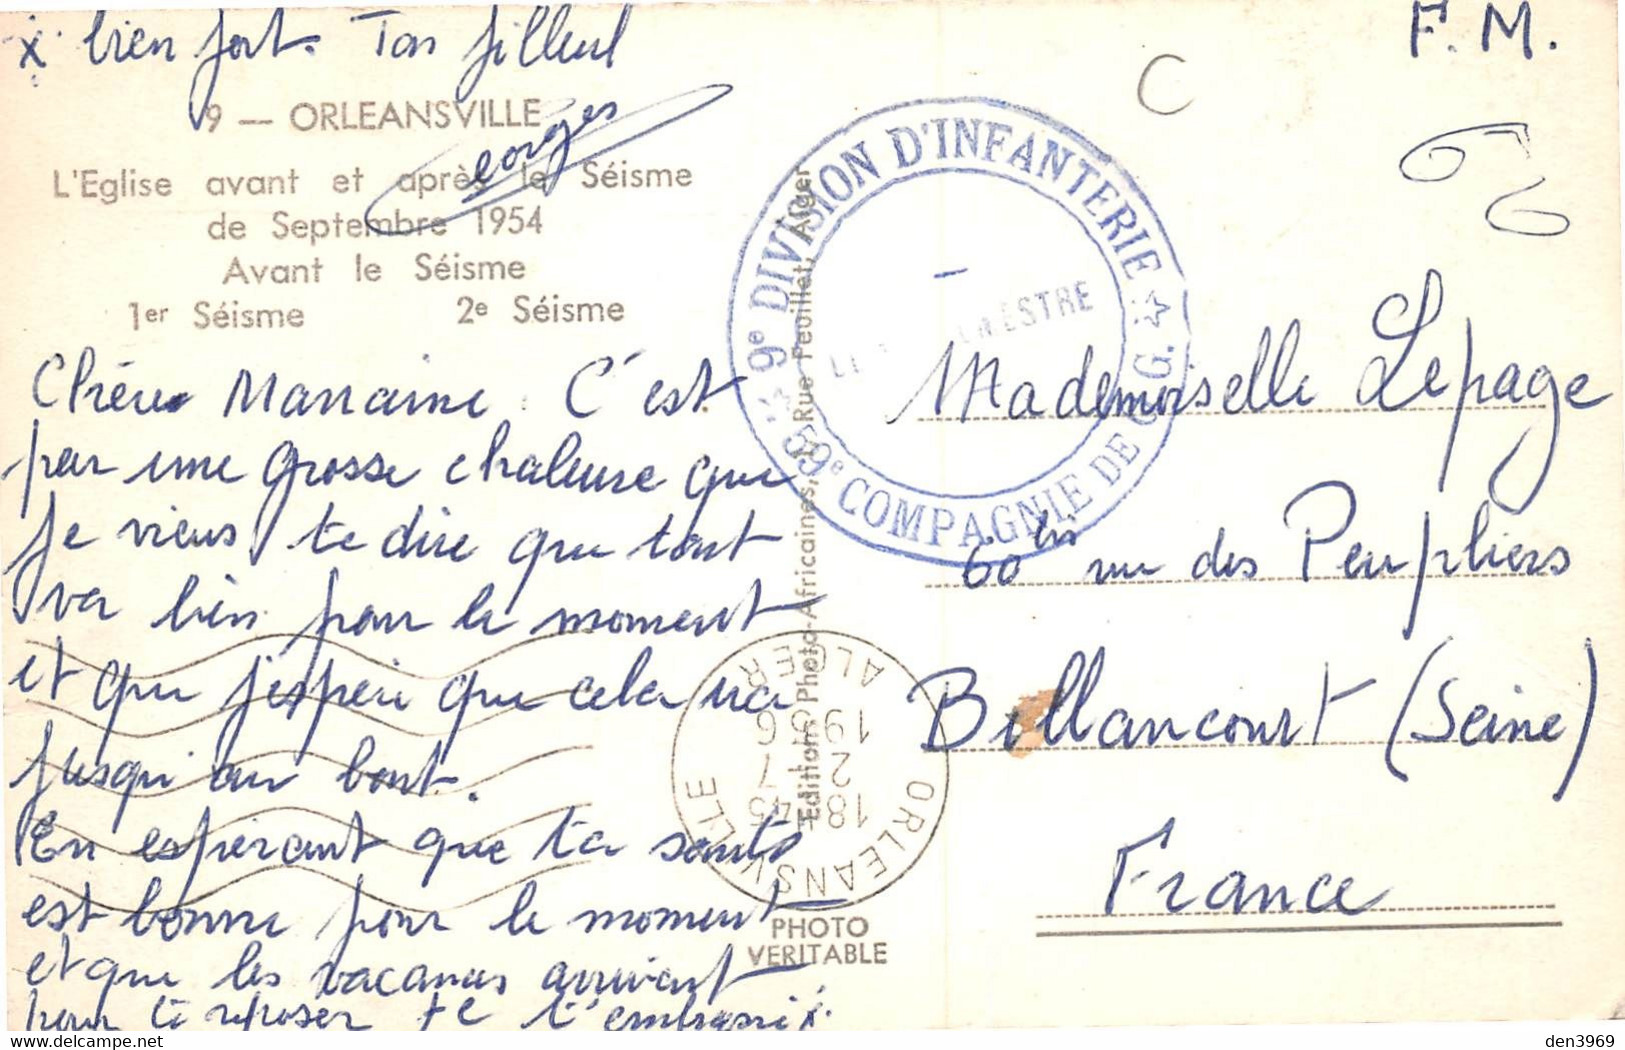 x bien fort. Ton filleul
Georges
9 — ORLEANSVILLE
L'Eglise avant et après le Séisme
de Septembre 1954
Avant le Séisme
1er Séisme 2e Séisme
Chère Marraine. C'est
par une grosse chaleure que
je viens te dire que tout
va bien pour le moment
et que j'espère que cela ira
jusqu'au bout.
En espérant que ta santé
est bonne pour le moment
et que les vacances arrivent
pour te reposer je t'embrasse x.
Editions Photo-Africaines, Rue Feuillet, Alger
PHOTO
VERITABLE
9e DIVISION D'INFANTERIE
59e COMPAGNIE DE Q.G.
ORLEANSVILLE
ALGER
18 45
2 7
19 6
F. M.
C
Mademoiselle Lepage
60 bis rue des Peupliers
Billancourt (Seine)
France
den3969